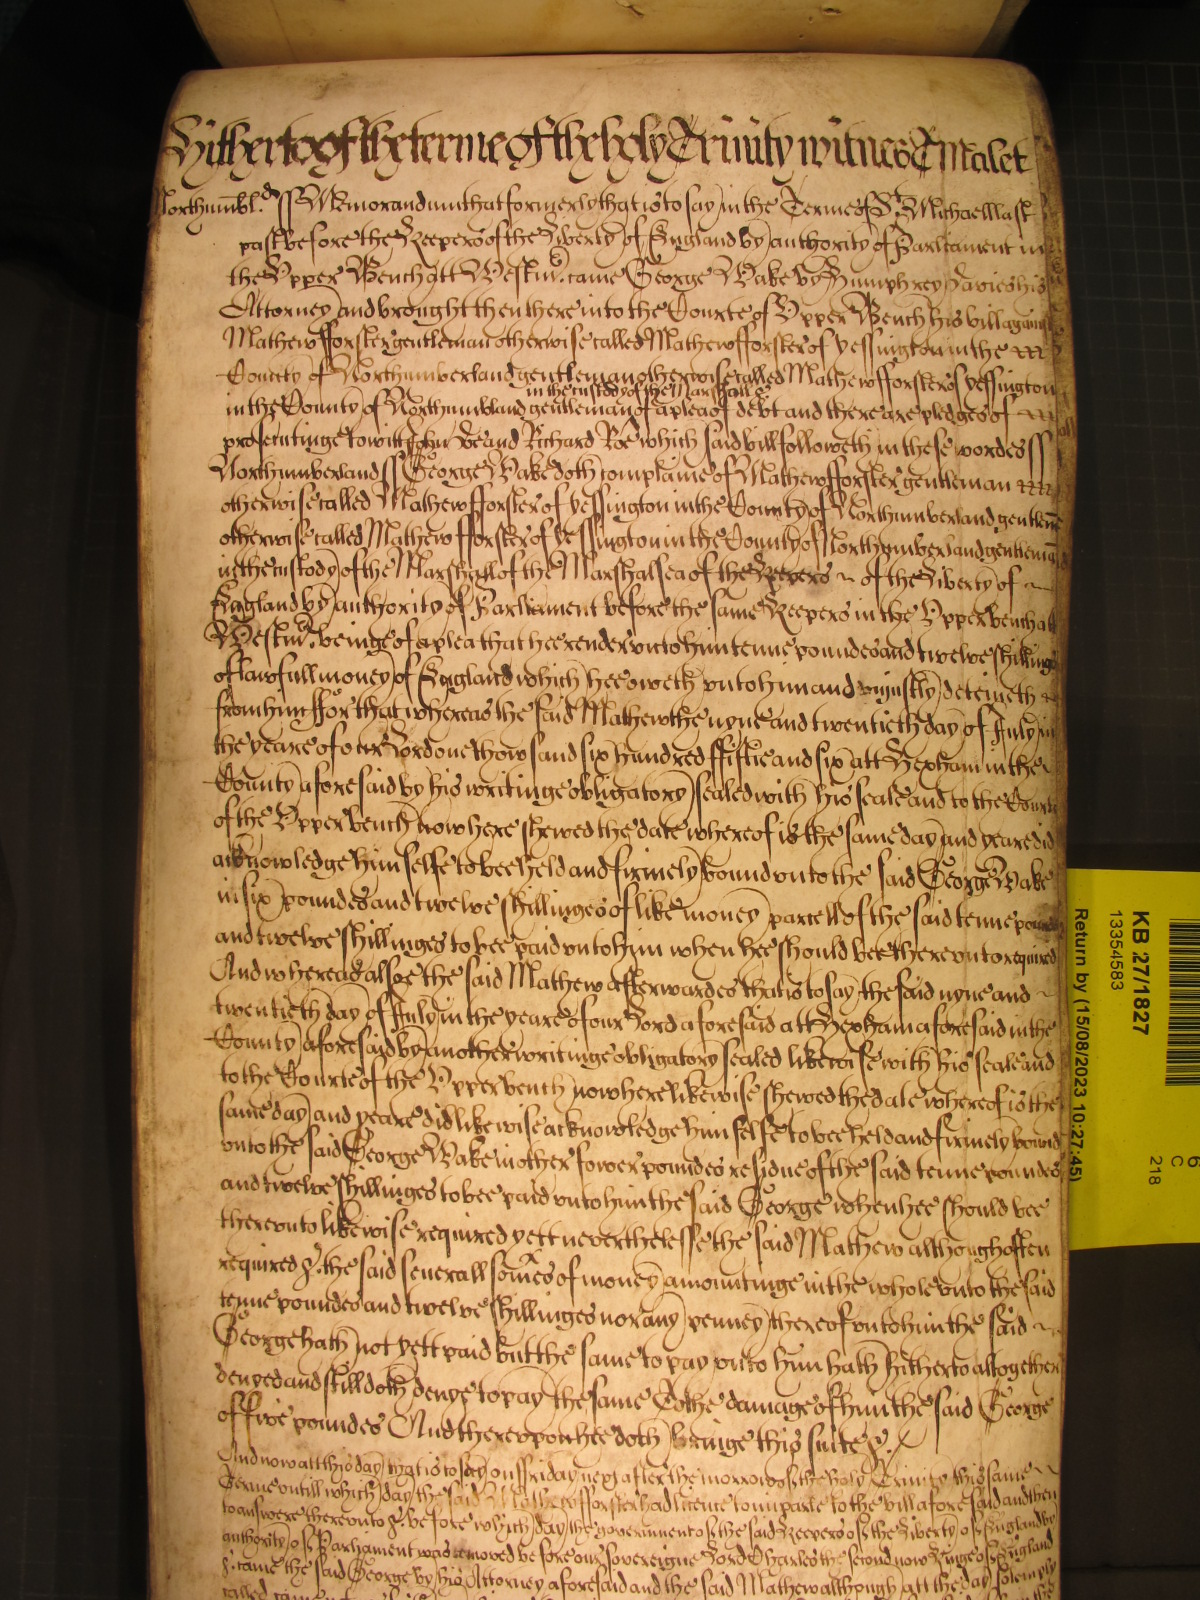 Hithertoo of the terme of the holy Trinity witnes T Malet
Northumbl:d ss Memorandum that formerly that is to say in the Terme of St. Michaell last
past before the Keepers of the Liberty of England by authority of Parliament in
the Upper Bench att Westmr. came George Wake by Humphrey Davies his
Attorney and brought then there into the Courte of Upper Bench his bill against
Mathew fforster gentleman otherwise called Mathew fforster of Yessington in the
County of Northumberland gentleman otherwise called Mathew fforster of Yessington
in the custody of the Marshall &c
in the County of Northumbland gentleman of a plea of debt and there are pledges of
prosecutinge to witt John Doe and Richard Roe which said bill followeth in these wordes ss
Northumberland ss George Wake doth complaine of Mathew fforster gentleman
otherwise called Mathew fforster of Yessington in the County of Northumberland gentlem
otherwise called Mathew fforster of Yessington in the County of Northumberland gentleman
in the custody of the Marshall of the Marshalsea of the Keepers of the Liberty of
England by authority of Parliament before the same Keepers in the Upper bench att
Westmr. beinge of a plea that hee render unto him tenne poundes and twelve shillings
of lawfull money of England which hee oweth unto him and unjustly deteineth
from him ffor that whereas the said Mathew the nyne and twentieth day of July in
the yeare of our Lord one thowsand six hundred ffiftie and six att Hexham in the
County aforesaid by his writinge obligatory sealed with his seale and to the Courte
of the Upper bench now here shewed the date whereof is the same day and yeare did
acknowledge himselfe to bee held and firmely bound unto the said George Wake
in six poundes and twelve shillinges of like money parcell of the said tenne poundes
and twelve shillinges to bee paid unto him when hee should bee thereunto required
And whereas alsoe the said Mathew afterwardes that is to say the said nyne and
twentieth day of July in the yeare of our Lord aforesaid att Hexham aforesaid in the
County aforesaid by another writinge obligatory sealed likewise with his seale and
to the Courte of the Upper bench now here likewise shewed the date whereof is the
same day and yeare did likewise acknowledge himselfe to bee held and firmely bound
unto the said George Wake in other fower poundes residue of the said tenne poundes
and twelve shillinges to bee paid unto him the said George when hee should bee
thereunto likewise required yett neverthelesse the said Mathew although often
required &c. the said severall somes of money amountinge in the whole unto the said
tenne poundes and twelve shillinges nor any penney thereof unto him the said
George hath not yett paid but the same to pay unto him hath hitherto altogether
denyed and still doth denye to pay the same To the damage of him the said George
of five poundes And thereupon hee doth bringe this suite &c.
And now att this day that is to say on ffriday next after the morrow of the holy Trinity this same
Terme untill which day the said Mathew fforster had licence to imparle to the bill aforesaid and then
to answere thereunto &c. before which day the government of the said Keepers of the Liberty of England by
authority of Parliament was removed before our sovereigne Lord Charles the second now Kinge of England
&c. came the said George by his Attorney aforesaid and the said Mathew although att the day solemply
called came
KB 27/1827
13354583
Return by (15/08/2023 10:27:45)
6
C
218